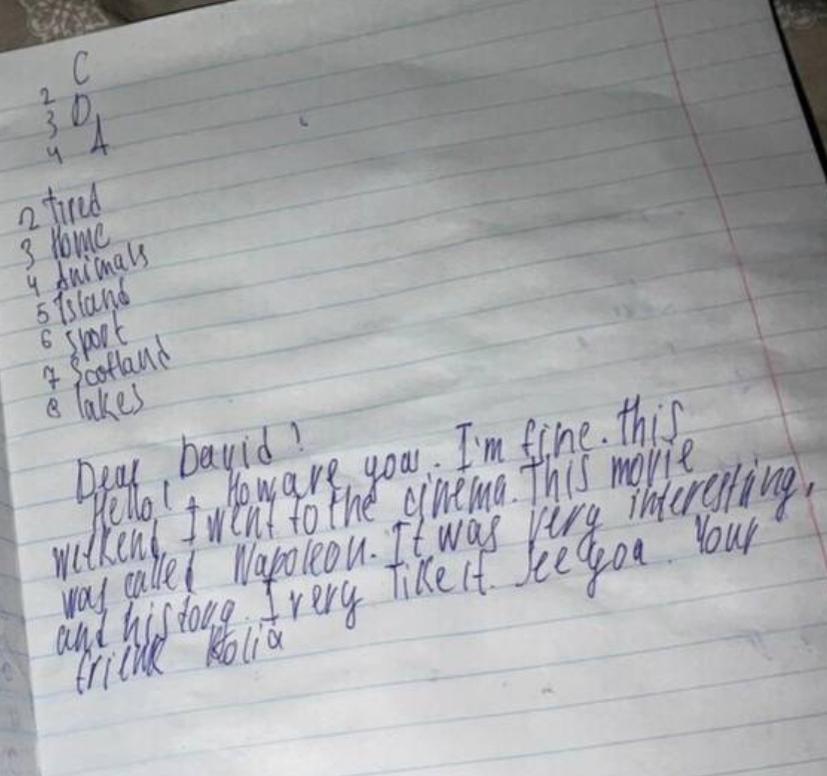 C
2 D
3 A
4
2 tired
3 Home
4 Animals
5 Island
6 sport
7 Scotland
8 lakes
Dear David!
Hello! How are you. I'm fine. this
weekend I went to the cinema. This movie
was called Napoleon. It was very interesting,
and history. I very like it. See you. Your
friend Kolia